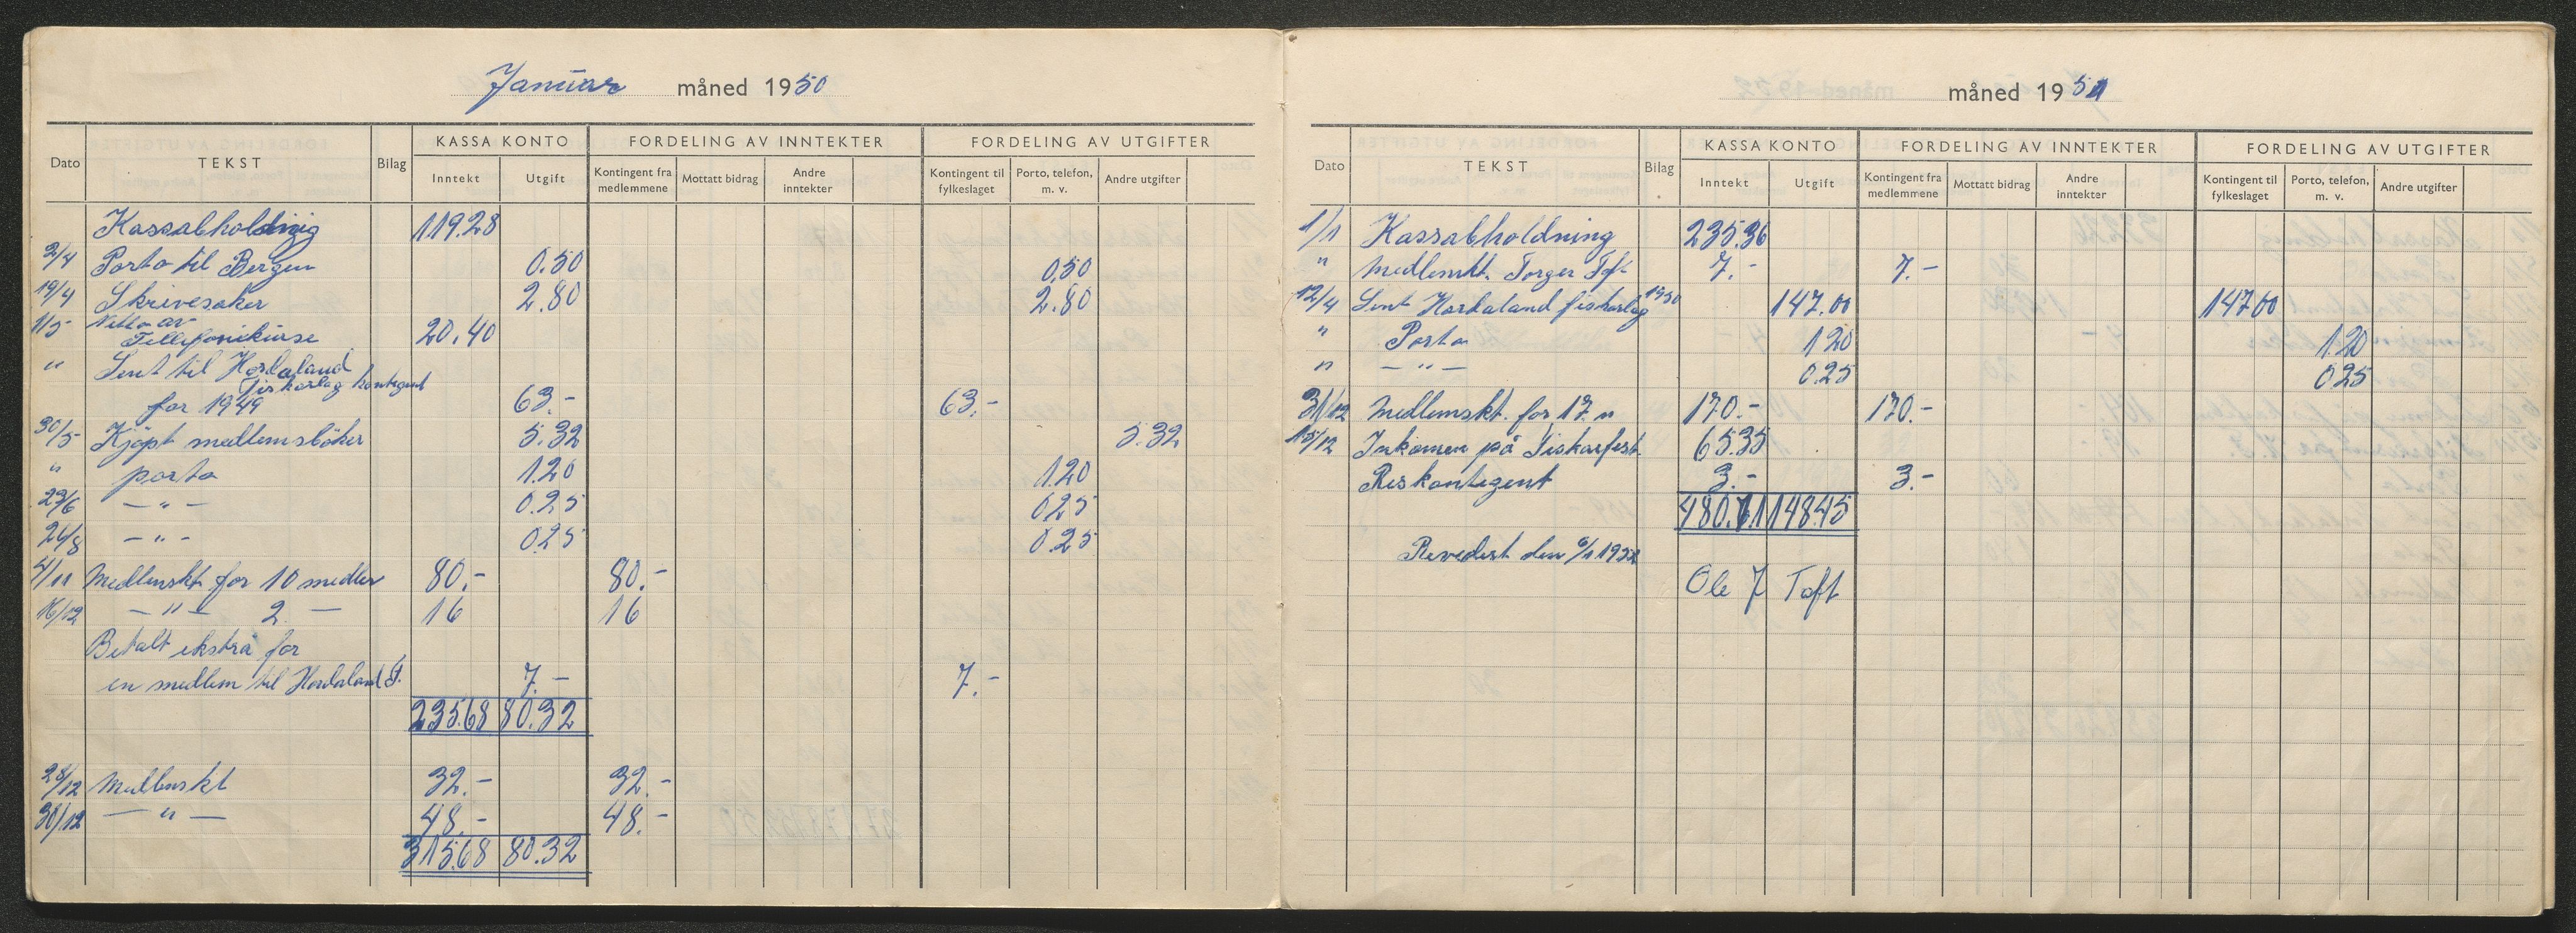 Januar måned 1950
KASSA KONTO FORDELING AV INNTEKTER FORDELING AV UTGIFTER
Dato TEKST Bilag Inntekt Utgift Kontingent fra medlemmene Mottatt bidrag Andre inntekter Kontingent til fylkeslaget Porto, telefon, m. v. Andre utgifter
Kassabholdnig 119.28
2/4 Porto til Bergen 0.50 0.50
19/4 Skrivesaker 2.80 2.80
1/5 Netto av
Tellefonikurse 20.40
" Sent til Hordaland
Fiskarlag kontegent
for 1949 63.- 63.-
30/5 Kjøpt medlemsbøker 5.32 5.32
" porto 1.20 1.20
23/6 — " — 0.25 0.25
26/8 — " - 0.25 0.25
4/11 Medlemskt for 10 medler 80.- 80.-
16/12 — " — 2 — 16 16
Betalt ekstra for
en medlem til Hordaland F. 7.— 7.-
235.68 80.32
28/12 Medlemskt 32.- 32.-
30/12 — " — 48.- 48.-
315.68 80.32
måned 1951
KASSA KONTO FORDELING AV INNTEKTER FORDELING AV UTGIFTER
Dato TEKST Bilag Inntekt Utgift Kontingent fra medlemmene Mottatt bidrag Andre inntekter Kontingent til fylkeslaget Porto, telefon, m. v. Andre utgifter
1/1 Kassabholdning 235.36
" Medlemskt. Torger Toft 7.- 7.-
12/4 Sent Hordaland fiskarlag 1950 147.00 147.00
" Porto 1.20 1.20
" — " — 0.25 0.25
31/12 Medlemskt. for 17. n 170.- 170.-
15/12 Inkomen på Fiskarfest. 65.35
Reskontigent 3.- 3.-
480.71 148.45
Revedert den 6/1 1952
Ole J Toft